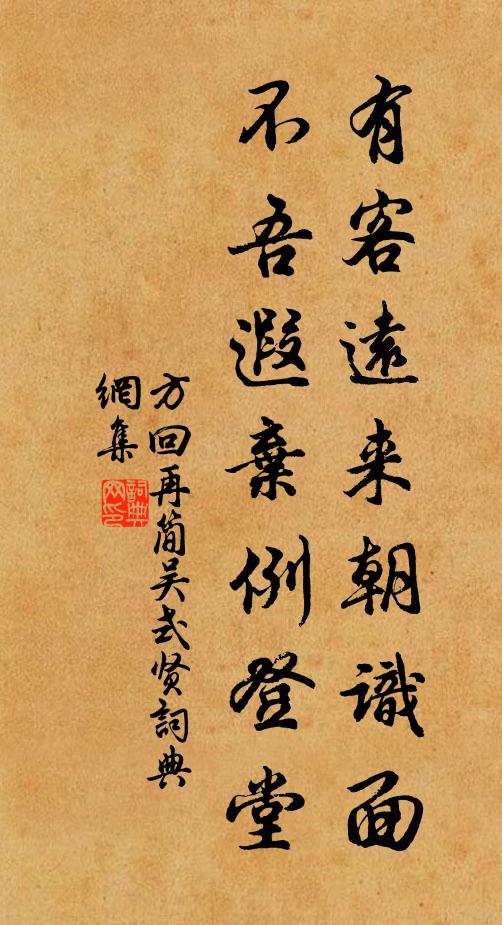 有客遠来朝識面
不吾遐棄例登堂
方回再简吴式贤詞典
網集
詞典
网印